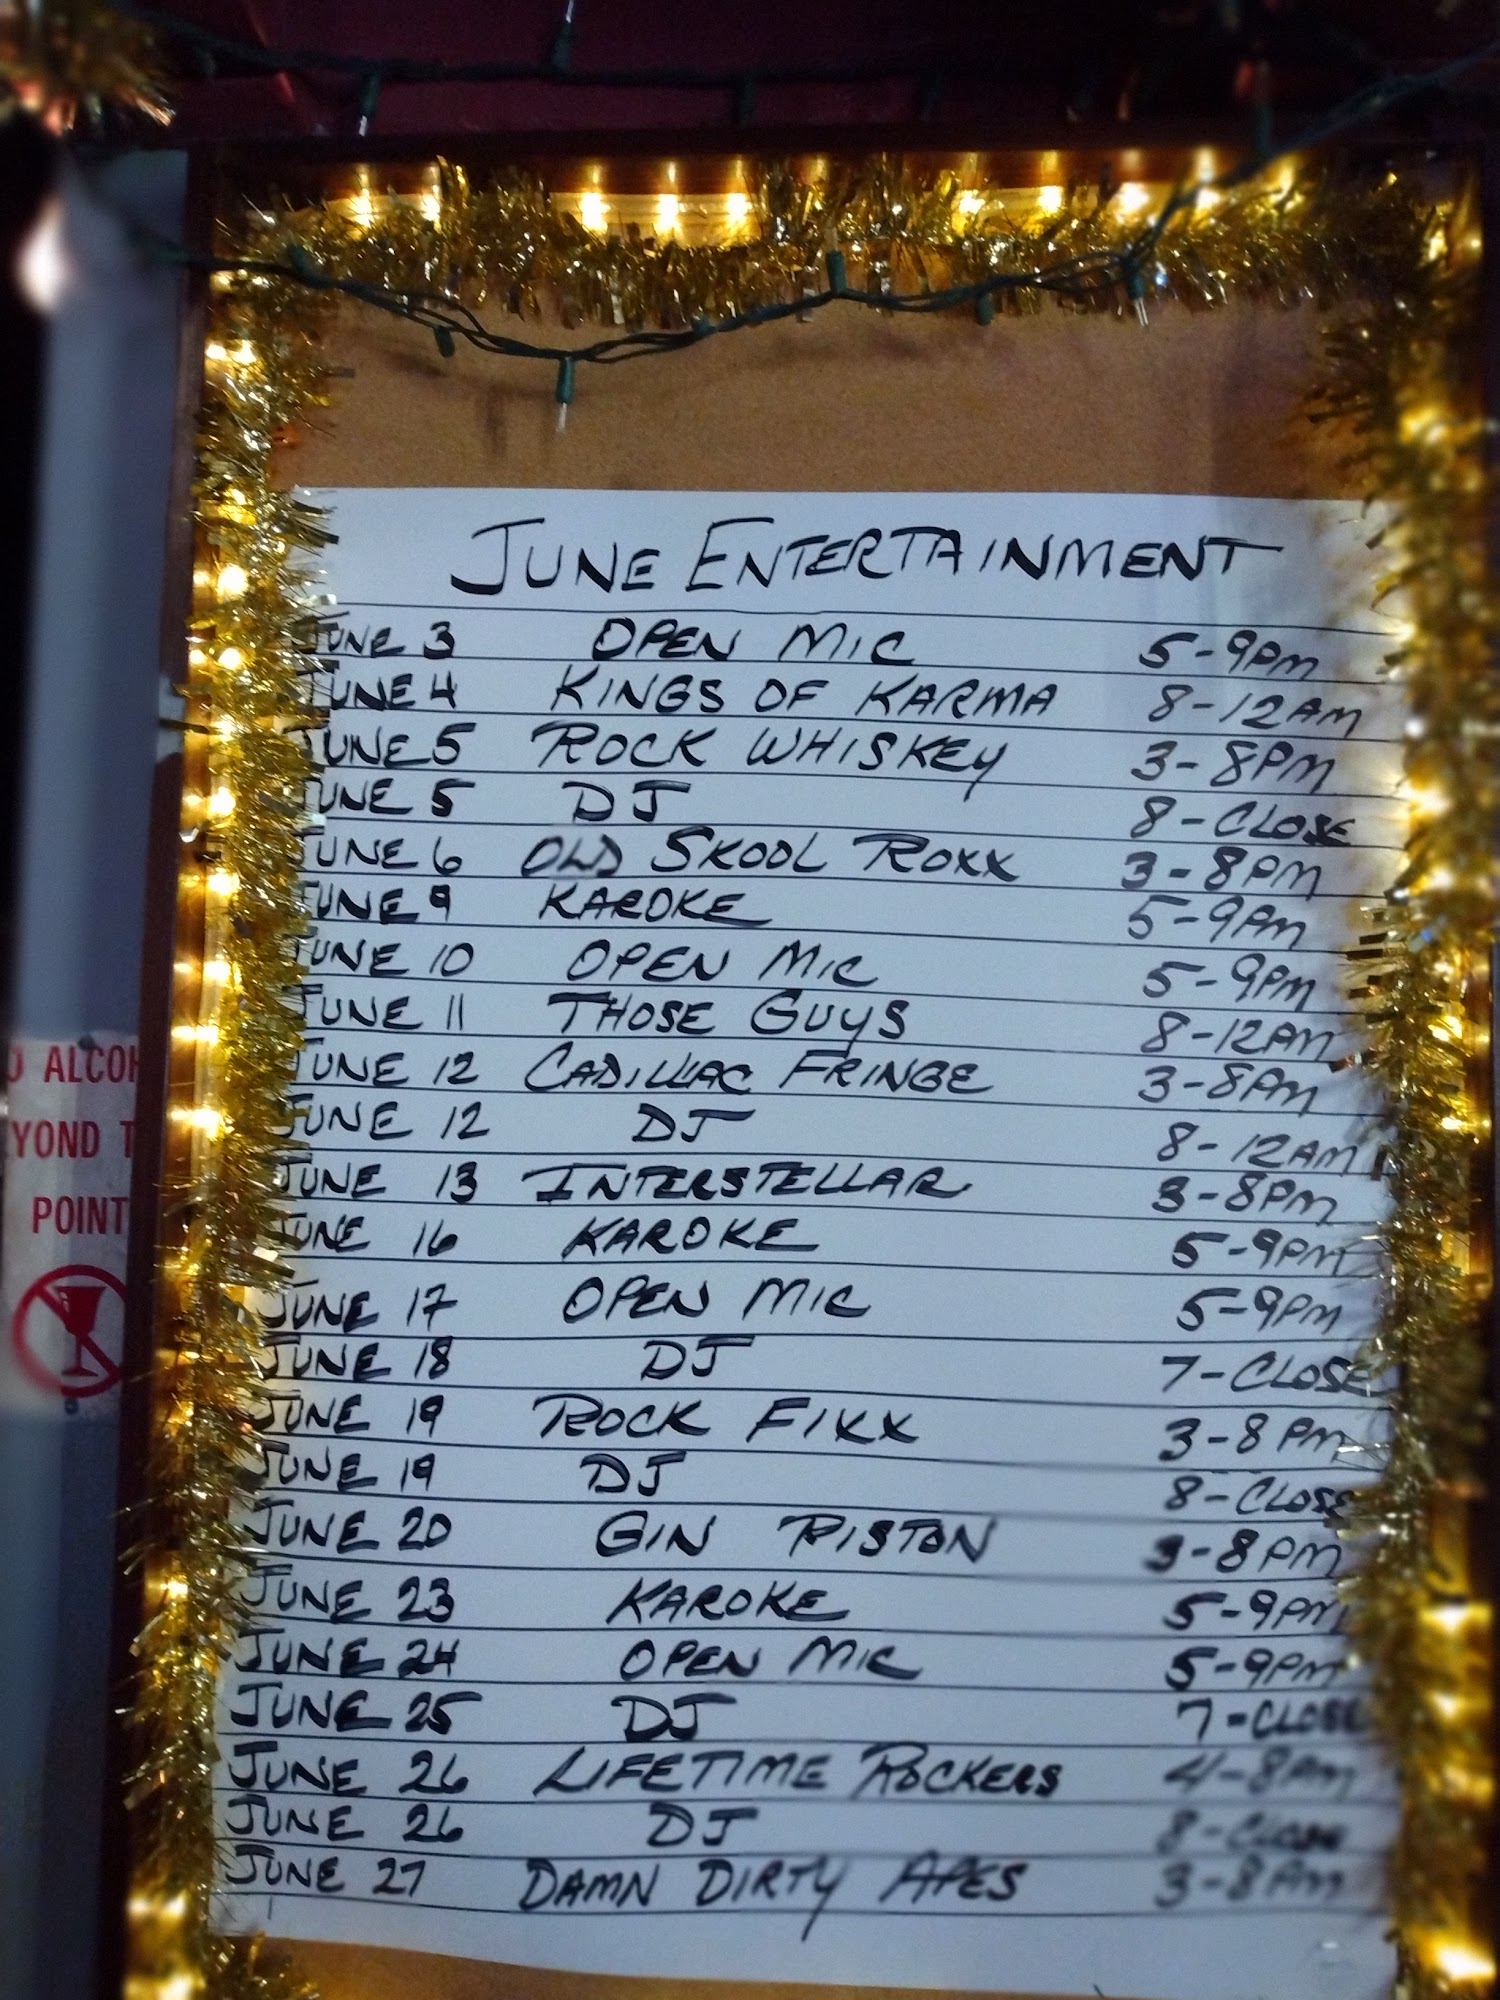 JUNE ENTERTAINMENT
JUNE 3 OPEN MIC 5-9PM
JUNE 4 KINGS OF KARMA 8-12AM
JUNE 5 ROCK WHISKEY 3-8PM
JUNE 5 DJ 8-CLOSE
JUNE 6 OLD SKOOL ROXX 3-8PM
JUNE 9 KAROKE 5-9PM
JUNE 10 OPEN MIC 5-9PM
JUNE 11 THOSE GUYS 8-12AM
JUNE 12 CADILLAC FRINGE 3-8PM
JUNE 12 DJ 8-12AM
JUNE 13 INTERSTELLAR 3-8PM
JUNE 16 KAROKE 5-9PM
JUNE 17 OPEN MIC 5-9PM
JUNE 18 DJ 7-CLOSE
JUNE 19 ROCK FIXX 3-8PM
JUNE 19 DJ 8-CLOSE
JUNE 20 GIN PISTON 3-8PM
JUNE 23 KAROKE 5-9PM
JUNE 24 OPEN MIC 5-9PM
JUNE 25 DJ 7-CLOSE
JUNE 26 LIFETIME ROCKERS 4-8PM
JUNE 26 DJ 8-CLOSE
JUNE 27 DAMN DIRTY APES 3-8PM
O ALCOH
YOND T
POINT